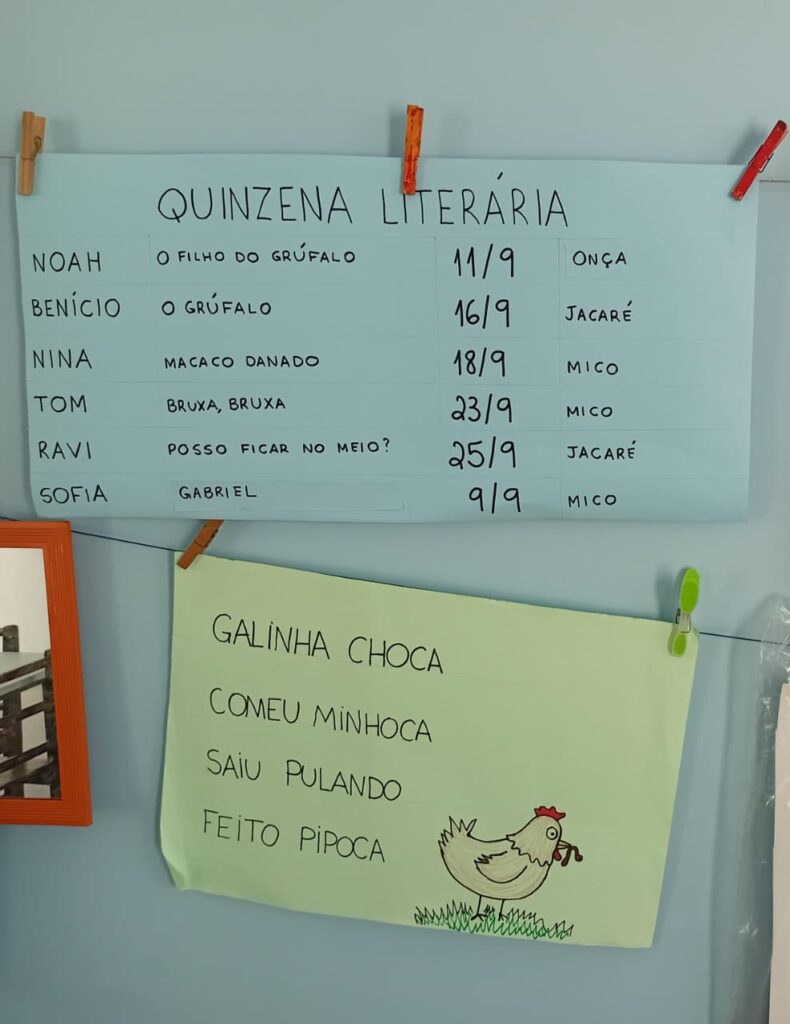 QUINZENA LITERÁRIA
NOAH O FILHO DO GRÚFALO 11/9 ONÇA
BENÍCIO O GRÚFALO 16/9 JACARÉ
NINA MACACO DANADO 18/9 MICO
TOM BRUXA, BRUXA 23/9 MICO
RAVI POSSO FICAR NO MEIO? 25/9 JACARÉ
SOFIA GABRIEL 9/9 MICO
GALINHA CHOCA
COMEU MINHOCA
SAIU PULANDO
FEITO PIPOCA